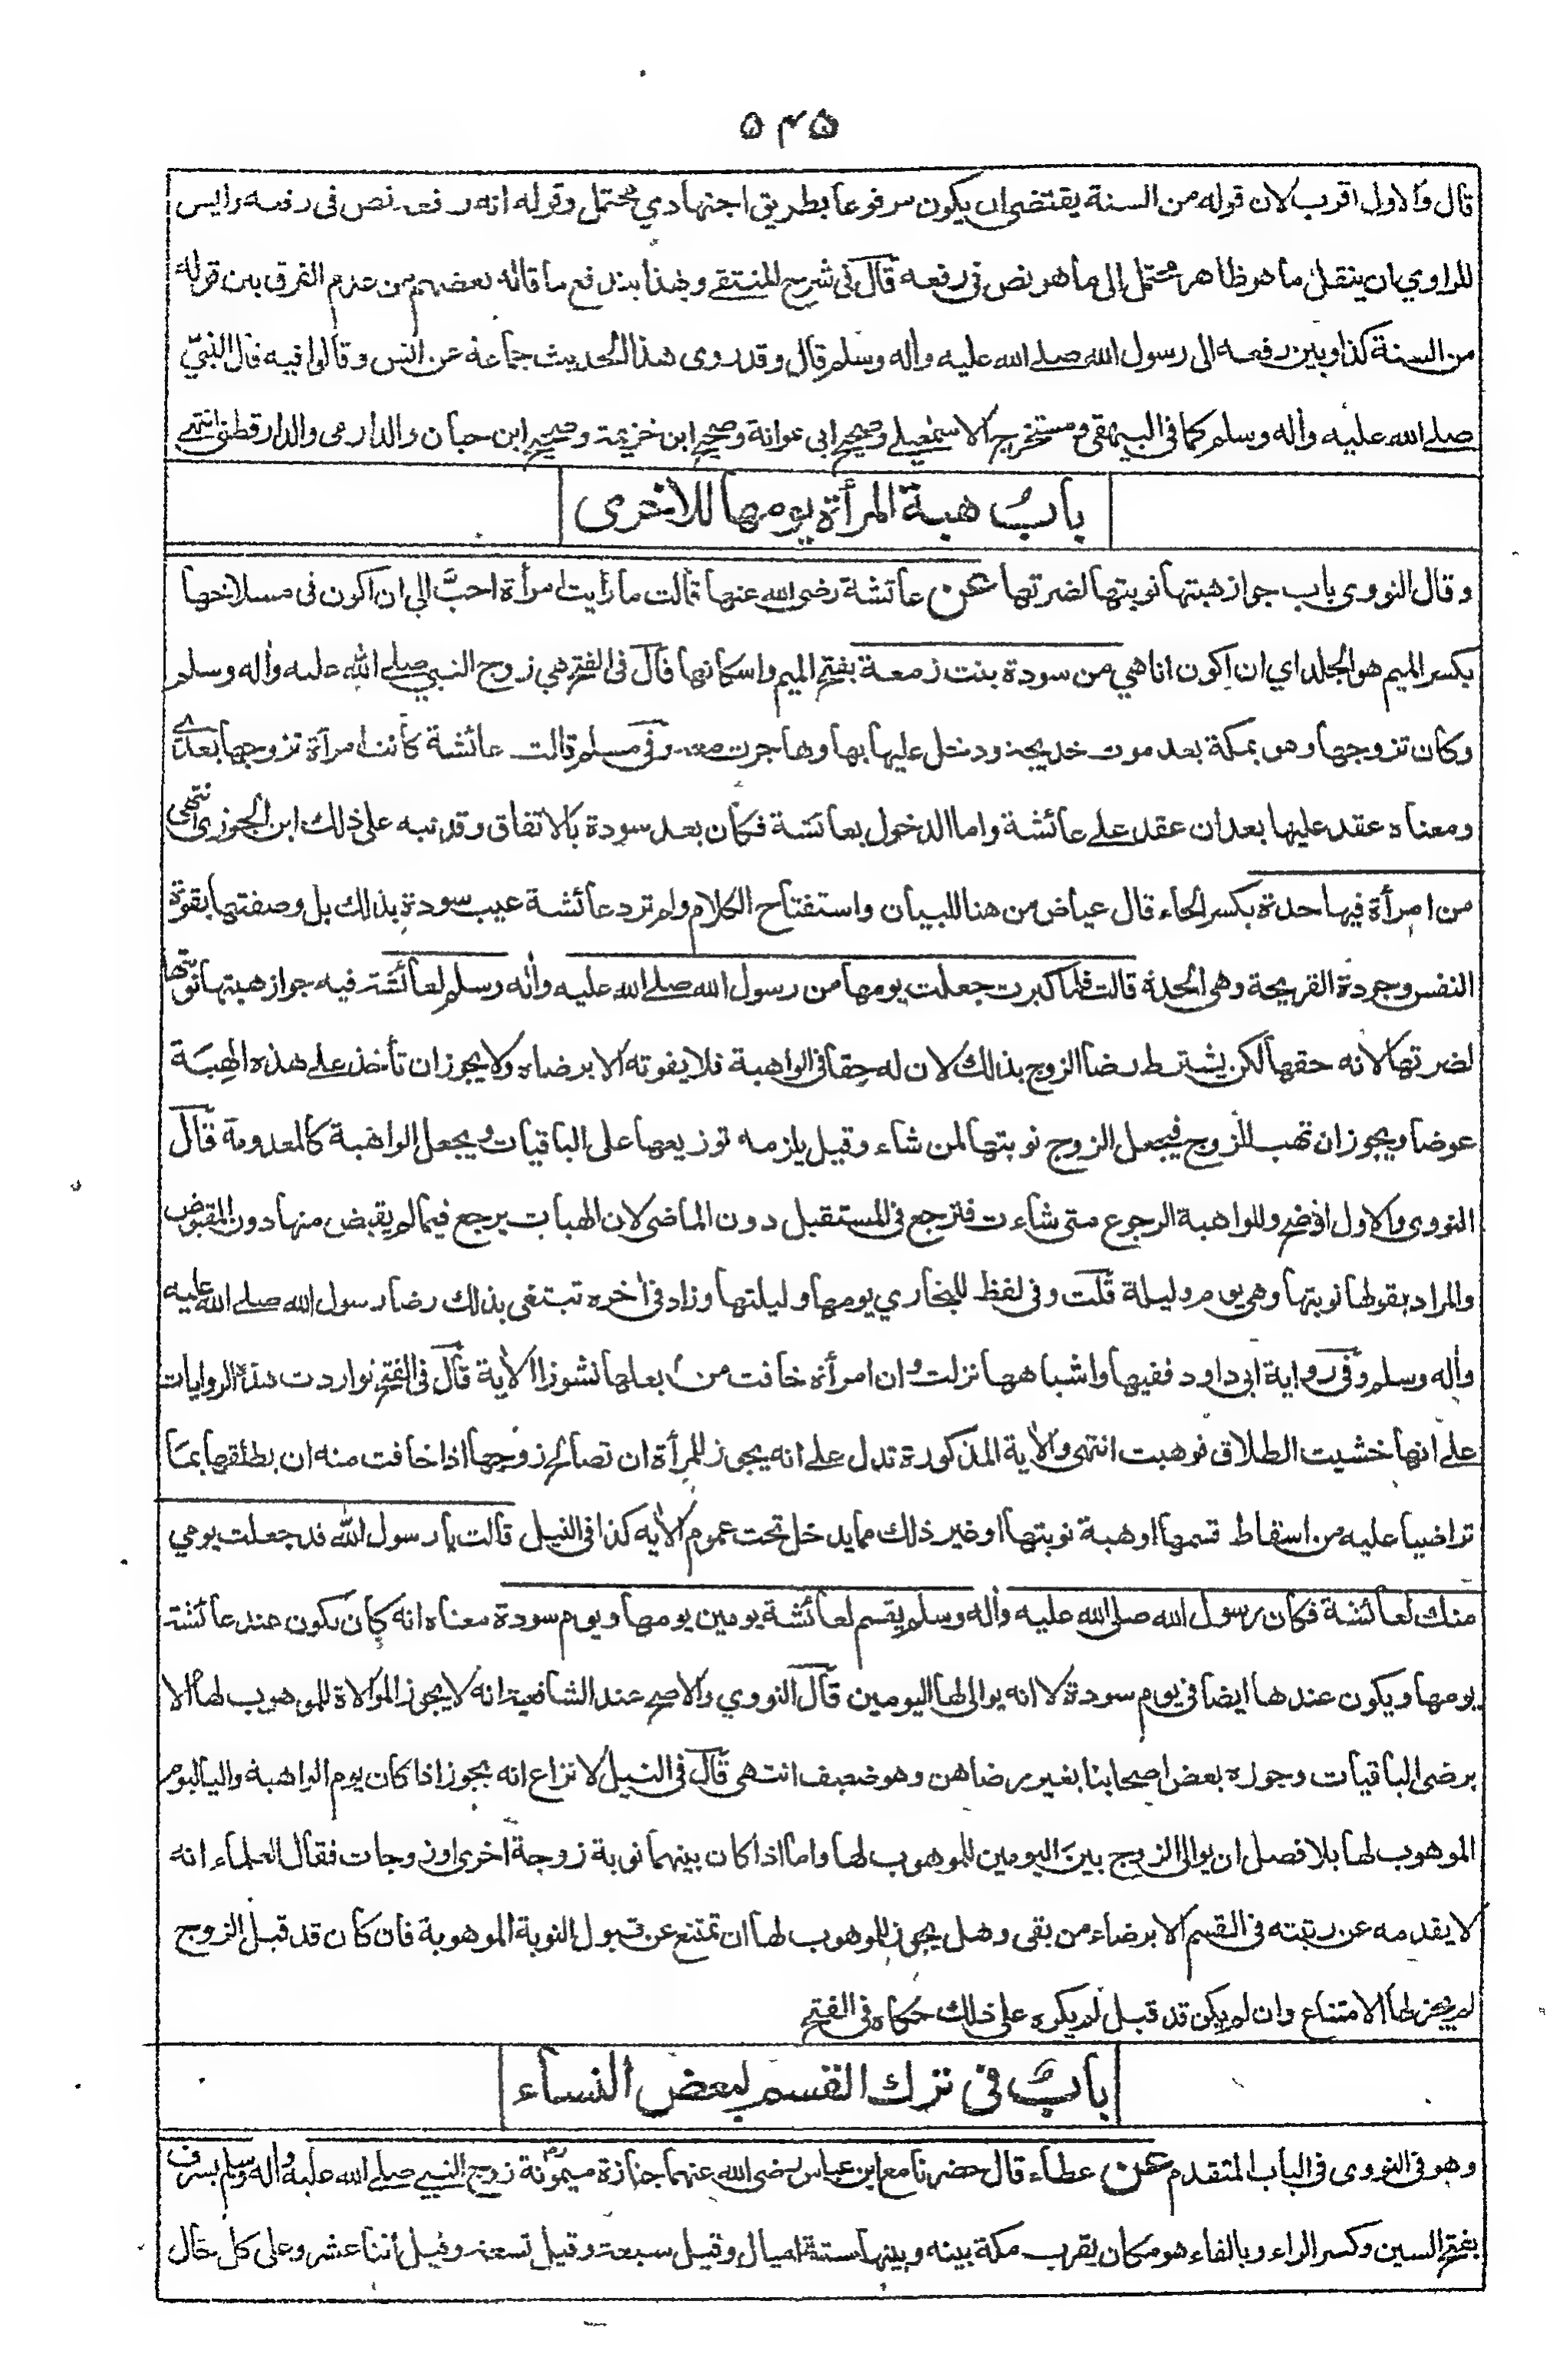 ۵۴۵
قال والاول اقرب لان قوله من السنة يقتضى ان يكون مرفوعا بطريق اجتهادي محتمل وقوله انه رفعه نص فى رفعه وليس
للراوي ان ينقل ما هو ظاهر محتمل الى ما هو نص في رفعه قال فى شرح المنتقے وبهذا يندفع ما قاله بعضهم من عدم الفرق بين قوله
من السنة كذا وبين رفعه الى رسول الله صلے الله عليه واٰله وسلم قال وقد روى هذا الحديث جماعة عن انس وقالوا فيه قال النبيّ
صلے الله عليه واٰله وسلم كما في البيهقى ومستخرج الاسمٰعيلے وصحيح ابى عوانة وصحيح ابن خزيمة وصحيح ابن حبان والدارمى والدارقطنى انتهے
بابُ هبة المرأة يومها للاخرى
وقال النووى باب جواز هبتها نوبتها لضرتها عن عائشة رضى الله عنها قالت ما رأيت امرأة احبَّ الي ان اكون فى مسلاخها
بكسر الميم هو الجلد اي ان اكون انا هي من سودة بنت زمعة بفتح الميم واسكانها قال فى الفتح هي زوج النبي صلے الله عليه واٰله وسلم
وكان تزوجها وهو بمكة بعد موت خديجة ودخل عليها بها وهاجرت معه وفى مسلم قالت عائشة كانت امرأة تزوجها بعدي
ومعناه عقد عليها بعد ان عقد علے عائشة واما الدخول بعائشة فكان بعد سودة بالاتفاق وقد نبه على ذلك ابن الجوزى انتهى
من امرأة فيها حدة بكسر الحاء قال عياض من هنا للبيان واستفتاح الكلام ولم ترد عائشة عيب سودة بذلك بل وصفتها بقوة
النفس وجودة القريحة وهى الحدة قالت فلما كبرت جعلت يومها من رسول الله صلے الله عليه واٰله وسلم لعائشة فيه جواز هبتها نوبتها
لضرتها لانه حقها لكن يشترط رضا الزوج بذلك لان له حقا في الواهبة فلا يفوته الا برضاه ولا يجوز ان تأخذ علے هذه الهبة
عوضا ويجوز ان تهب للزوج فيجعل الزوج نوبتها لمن شاء وقيل يلزمه توزيعها على الباقيات ويجعل الواهبة كالمعدومة قال
النووى والاول اوضح وللواهبة الرجوع متى شاءت فترجع فى المستقبل دون الماضى لان الهبات يرجع فيما لم يقبض منها دون المقبوض
والمراد بقولها نوبتها وهي يوم وليلة قلت وفى لفظ للبخاري يومها وليلتها وزاد فى اٰخره تبتغى بذلك رضا رسول الله صلے الله عليه
واٰله وسلم وفى رواية ابى داود ففيها واشباهها نزلت وان امرأة خافت من بعلها نشوزا الاٰية قال فى الفتح فتواردت هذه الروايات
علے انها خشيت الطلاق فوهبت انتهى والاٰية المذكورة تدل علے انه يجوز للمرأة ان تصالح زوجها اذا خافت منه ان يطلقها بما
تراضيا عليه من اسقاط قسمها او هبة نوبتها او غير ذلك مما يدخل تحت عموم الاٰية كذا فى النيل قالت يا رسول الله قد جعلت يومي
منك لعائشة فكان رسول الله صلى الله عليه واٰله وسلم يقسم لعائشة يومين يومها ويوم سودة معناه انه كان يكون عند عائشة
يومها ويكون عندها ايضا في يوم سودة لا انه يوالى لها اليومين قال النووي والاصح عند الشافعية انه لا يجوز الموالاة للموهوب لها الا
برضى الباقيات وجوزه بعض اصحابنا بغير رضاهن وهو ضعيف انتهى قال فى النيل لا نزاع انه يجوز اذا كان يوم الواهبة واليا ليوم
الموهوب لها بلا فصل ان يوالى الزوج بين اليومين للموهوب لها واما اذا كان بينهما نوبة زوجة اخرى او زوجات فقال العلماء انه
لا يقدمه عن رتبته فى القسم الا برضاء من بقى وهل يجوز للموهوب لها ان تمتنع عن قبول النوبة الموهوبة فان كان قد قبل الزوج
لم يجز لها الامتناع وان لم يكن قد قبل لم يكره على ذلك حكاه فى الفتح
بابٌ فى ترك القسم لبعض النساء
وهو فى النووى فى الباب المتقدم عن عطاء قال حضرنا مع ابن عباس رضى الله عنهما جنازة ميمونة زوج النبي صلے الله عليه واٰله وسلم بسرف
بفتح السين وكسر الراء وبالفاء هو مكان بقرب مكة بينه وبينها ستة اميال وقيل سبعة وقيل تسعة وقيل اثنا عشر وعلى كل حال